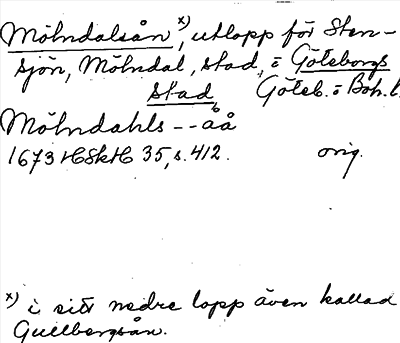 Mölndalsån x), utlopp för Sten-
sjön, Mölndal, stad, i Göteborgs
stad Göteb. o Boh. l.
Mölndahls -- åå
1673 HSkH 35, s. 412. orig.
x) i sitt nedre lopp även kallad
Gullbergsån.